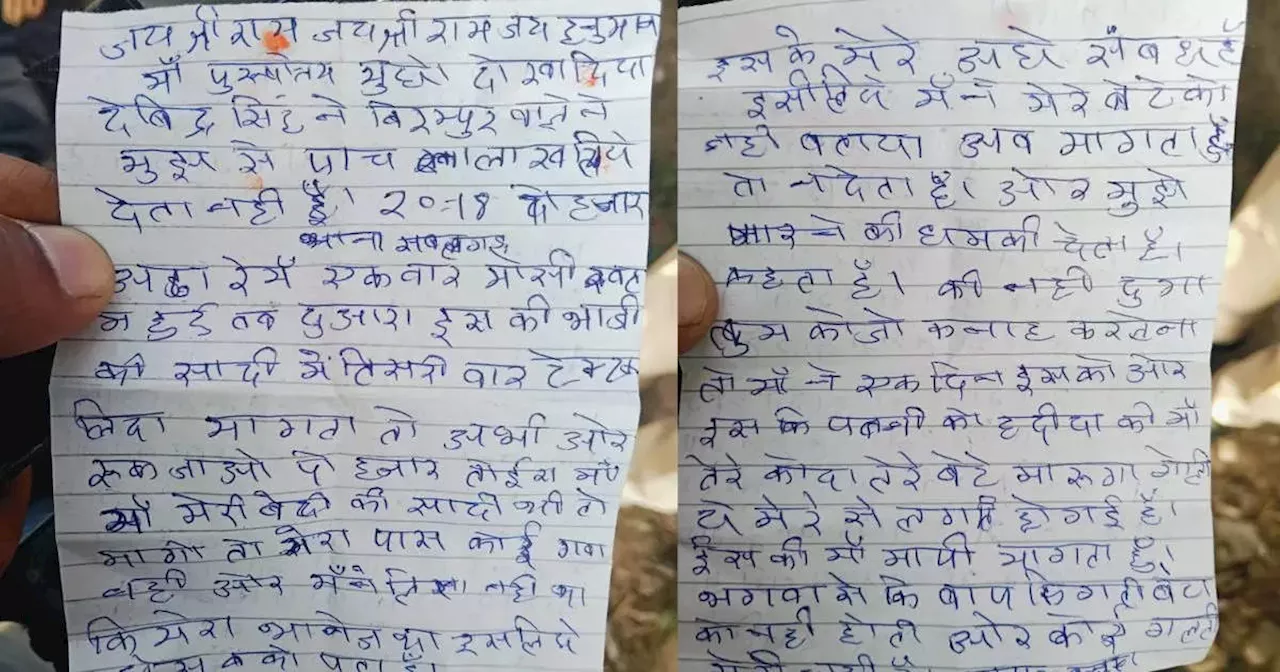 जय श्री राम जय श्री राम जय हनुमान
माँ पुरुषोतम मुझे दोखा दिया
देबिद्र सिंह ने बिरमपुर वाले ने
मुझ से पाच लाख लिये
देता नही हैं। 2018 दो हजार
थाना सबलगढ़
अठारे में एक बार
न हुई तब दुआरा इस की भाबी
की सादी में तिसरी वार
लिया मागता तो अभी ओर
रुक जाओ दो हजार
मेरी बेटी की सादी थी तो
मागे तो मेरा पास कोई गवा
नही ओर मैंने लिखा नही था
कि मेरा भानेज था इसलिये
पता है।
इस के मेरे अछे संबध है
इसीलिये मैंने मेरे बेटे को
नही बताया अब मागता हूँ
तो न देता है। ओर मुझे
मारने की धमकी देता है।
कहता हैं। की नही दुगा
तुम को जो करना है करलेना
तो मैंने एक दिन इसको ओर
इस कि पतनी को कह दीया की मैं
तेरे बेटे मारूगा गोली
ये मेरे से लगती हो गई है।
ईस की मैं मापी मागता हूँ।
भगवा से कि बाप कि गलती बेटा
को नही होती ओर कोई गलती